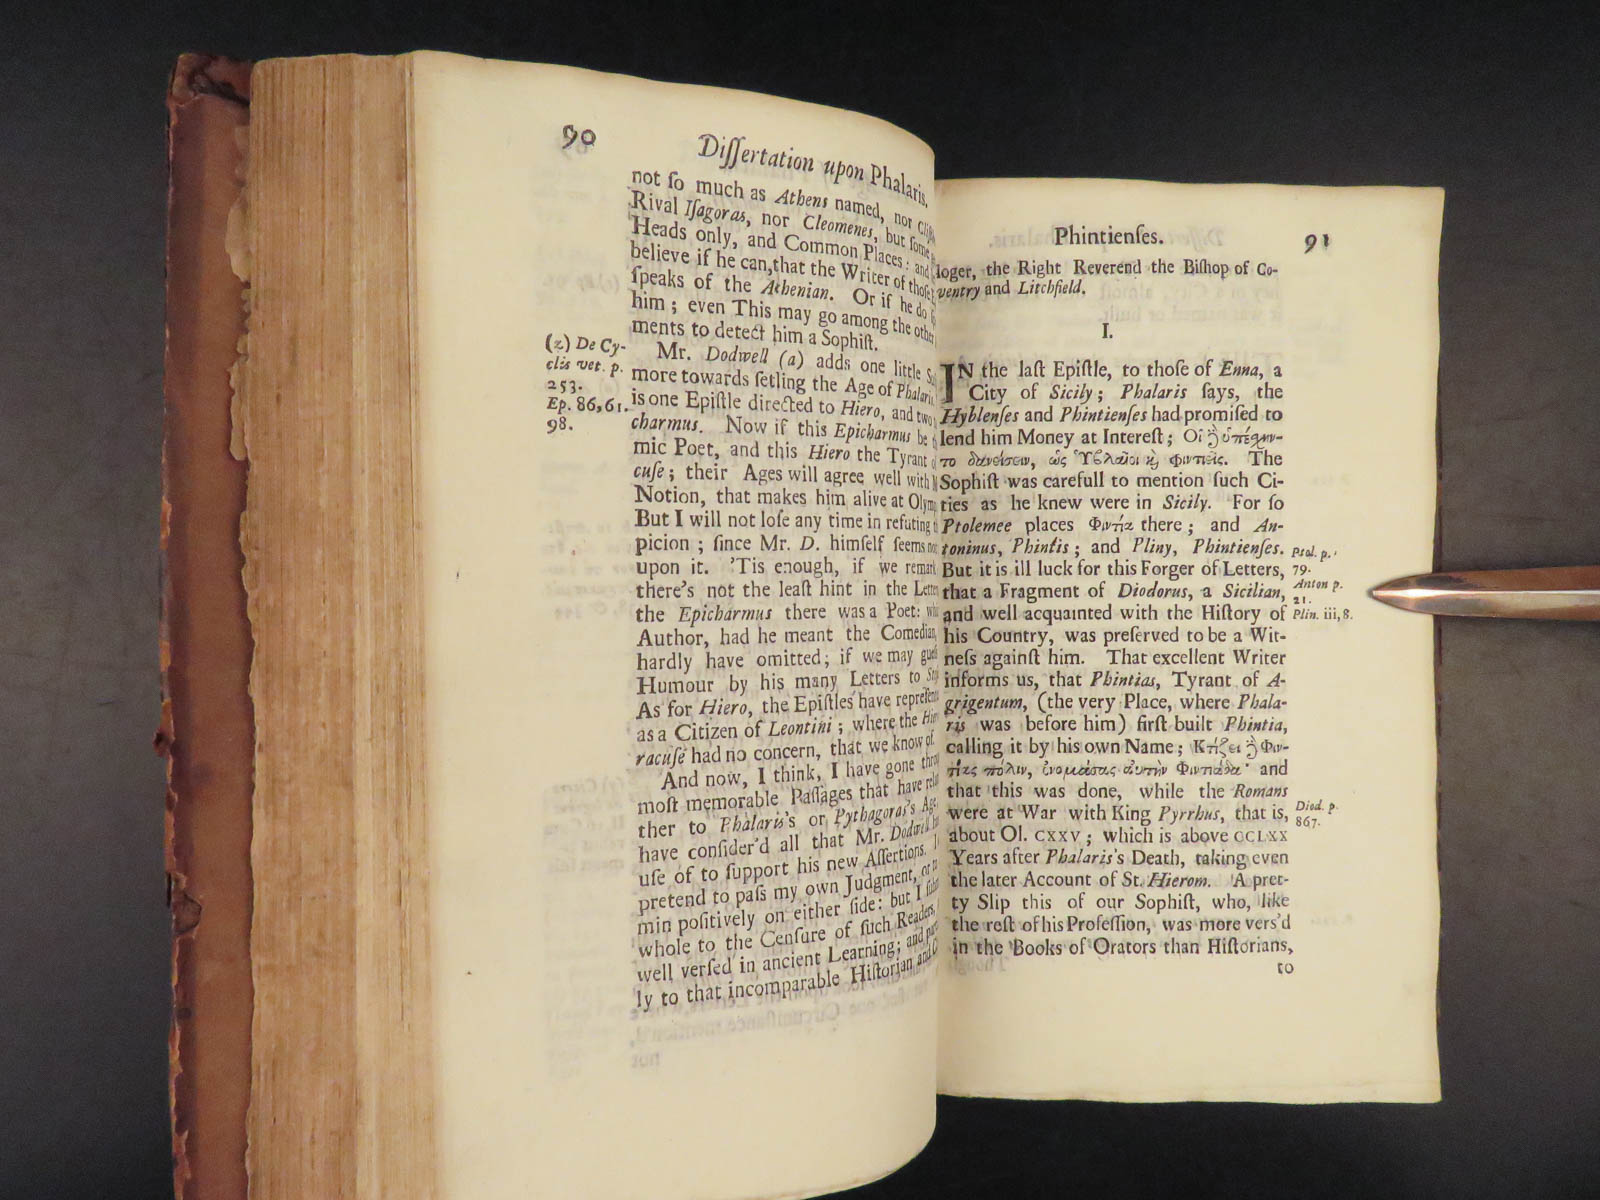 90
Diſſertation upon Phalaris,
not ſo much as Athens named, nor
Rival Iſagoras, nor Cleomenes, but ſome
Heads only, and Common Places: and
believe if he can, that the Writer of thoſe
ſpeaks of the Athenian. Or if he do
him; even This may go among the other
ments to detect him a Sophiſt.
(z) De Cy-
clis vet. p.
253.
Ep. 86, 61.
98.
Mr. Dodwell (a) adds one little
more towards ſetling the Age of Phalaris.
is one Epiſtle directed to Hiero, and two
charmus. Now if this Epicharmus be
mic Poet, and this Hiero the Tyrant
cuſe; their Ages will agree well with
Notion, that makes him alive at
But I will not loſe any time in refuting
picion; ſince Mr. D. himſelf ſeems not
upon it. 'Tis enough, if we remark
there's not the leaſt hint in the
the Epicharmus there was a Poet:
Author, had he meant the Comedian,
hardly have omitted; if we may gueſs
Humour by his many Letters to
As for Hiero, the Epiſtles have
as a Citizen of Leontini; where the
racuſe had no concern, that we know of.
And now, I think, I have gone
moſt memorable Paſſages that have
ther to Phalaris's or Pythagoras's Age,
have conſider'd all that Mr. Dodwell
uſe of to ſupport his new Aſſertions.
pretend to paſs my own Judgment, or
min poſitively on either ſide: but I
whole to the Cenſure of ſuch Readers,
well verſed in ancient Learning; and
ly to that incomparable Hiſtorian and
Phintienſes.
91
loger, the Right Reverend the Biſhop of Co-
ventry and Litchfield.
I.
IN the laſt Epiſtle, to thoſe of Enna, a
City of Sicily; Phalaris ſays, the
Hyblenſes and Phintienſes had promiſed to
lend him Money at Intereſt; Οἱ ὃ ὑπέχην-
το δανείσειν, ὡς Ὑβλαῖοι κὴ Φιντιεῖς. The
Sophiſt was carefull to mention ſuch Ci-
ties as he knew were in Sicily. For ſo
Ptolemee places Φιντία there; and An-
toninus, Phintis; and Pliny, Phintienſes.
But it is ill luck for this Forger of Letters,
that a Fragment of Diodorus, a Sicilian,
and well acquainted with the Hiſtory of
his Country, was preſerved to be a Wit-
neſs againſt him. That excellent Writer
informs us, that Phintias, Tyrant of A-
grigentum, (the very Place, where Phala-
ris was before him) firſt built Phintia,
calling it by his own Name; Κτίζει ὃ Φιν-
τίας πόλιν, ὀνομάσας αὐτὴν Φιντιάδα· and
that this was done, while the Romans
were at War with King Pyrrhus, that is,
about Ol. CXXV; which is above CCLXX
Years after Phalaris's Death, taking even
the later Account of St. Hierom. A pret-
ty Slip this of our Sophiſt, who, like
the reſt of his Profeſſion, was more vers'd
in the Books of Orators than Hiſtorians,
to
Ptol. p.
79.
Anton p.
21.
Plin. iii, 8.
Diod. p.
867.